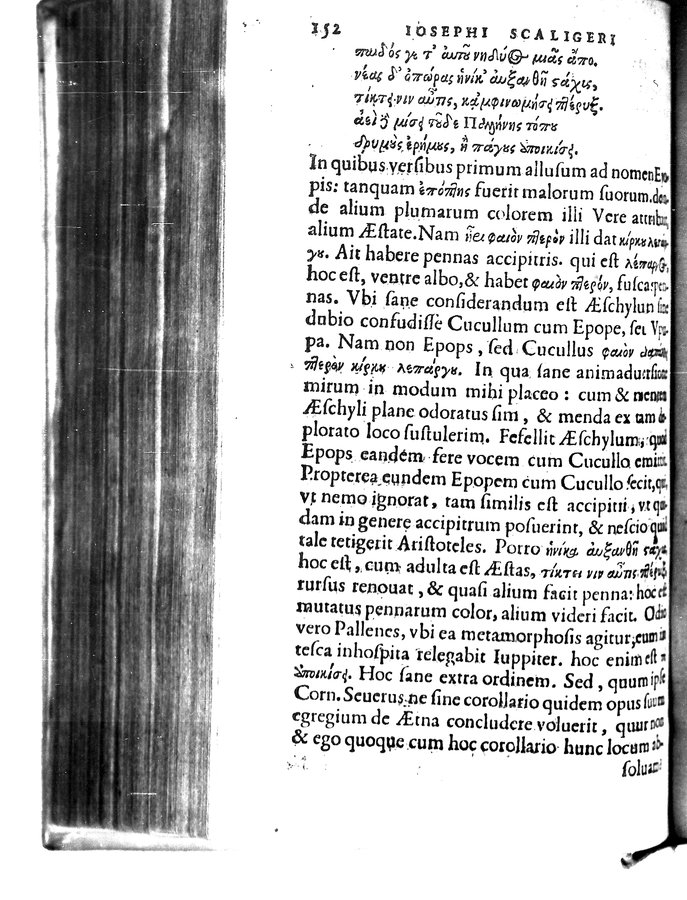 152 IOSEPHI SCALIGERI
παιδός γε τ' αὐτοῦ νηδύος μιᾶς ἄπο.
νέας δ' ὀπώρας ἡνίκ' αὐξανθῇ στάχις,
τίκτει νιν αὖτις, κἀμφινωμήσει πτέρυξ.
ἀεὶ δὲ μίσει τοῦδε Παλλήνης τόπου
δρυμοὺς ἐρήμους, ἢ πάγους ἀποικίσει.
In quibus versibus primum allusum ad nomen
pis: tanquam ἐπόπτης fuerit malorum suorum.
de alium plumarum colorem illi Vere
alium Æstate. Nam φαιὸν πτερὸν illi dat
γυ. Ait habere pennas accipitris. qui est λέπαργος,
hoc est, ventre albo, & habet φαιὸν πτερόν, fusca
nas. Vbi sane considerandum est Æschylum sine
dubio confudisse Cucullum cum Epope, seu Vpu-
pa. Nam non Epops, sed Cucullus φαιὸν
πτερὸν κίρκου λεπάργου. In qua sane animaduersione
mirum in modum mihi placeo: cum & mentem
Æschyli plane odoratus sim, & menda ex tam de-
plorato loco sustulerim. Fefellit Æschylum, quod
Epops eandem fere vocem cum Cucullo emittat.
Propterea eundem Epopem cum Cucullo fecit, qui,
vt nemo ignorat, tam similis est accipitri, vt qui-
dam in genere accipitrum posuerint, & nescio quid
tale tetigerit Aristoteles. Porro ἡνίκα αὐξανθῇ στάχις
hoc est, cum adulta est Æstas, τίκτει νιν αὖτις πτέρυξ
rursus renouat, & quasi alium facit penna: hoc est
mutatus pennarum color, alium videri facit. Odio
vero Pallenes, vbi ea metamorphosis agitur, eum in
tesca inhospita relegabit Iuppiter. hoc enim est
ἀποικίσει. Hoc sane extra ordinem. Sed, quum ipse
Corn. Seuerus ne sine corollario quidem opus suum
egregium de Ætna concludere voluerit, quur non
& ego quoque cum hoc corollario hunc locum ab-
soluam?